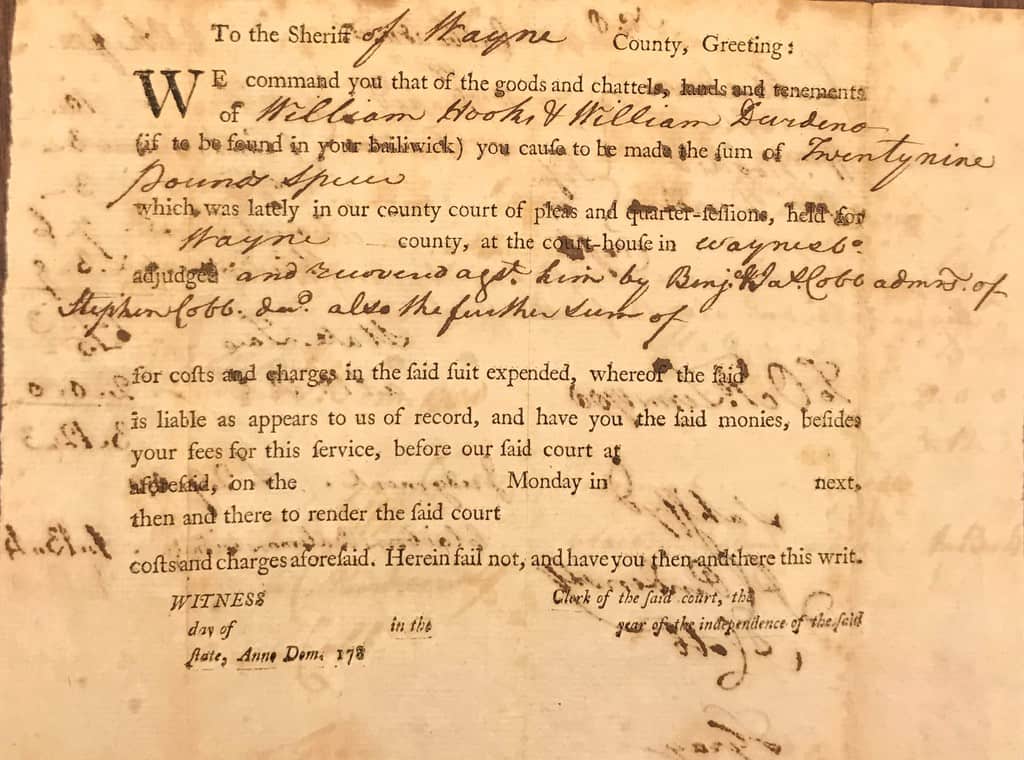 To the Sheriff of Wayne County, Greeting:
WE command you that of the goods and chattels, lands and tenements
of William Hooks & William Durden
(if to be found in your bailiwick) you cauſe to be made the ſum of Twentynine
Pounds Specie
which was lately in our county court of pleas and quarter-ſeſſions, held for
Wayne county, at the court-houſe in Waynesbo
adjudged and recovered agst. him by Benj. Cobb admrs. of
Stephen Cobb. decd. also the further sum of
for coſts and charges in the ſaid ſuit expended, whereof the ſaid
is liable as appears to us of record, and have you the ſaid monies, beſides
your fees for this ſervice, before our ſaid court at
aforeſaid, on the Monday in next,
then and there to render the ſaid court
coſts and charges aforeſaid. Herein fail not, and have you then and there this writ.
WITNESS Clerk of the ſaid court, the
day of in the year of the independence of the ſaid
ſtate, Anno Dom. 178